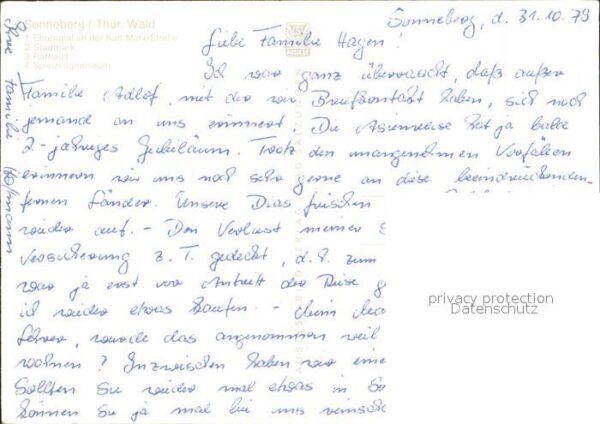 Sonneberg / Thür. Wald
1 Ehrenmal an der Karl-Marx-Straße
2 Stadtpark
3 Rathaus
4 Spielzeugmuseum
Sonneberg, d. 31.10.79
Liebe Familie Hagen!
Ich war ganz überrascht, daß außer
Familie Adlof, mit der wir Briefkontakt haben, sich noch
jemand an uns erinnert. Die Asienreise hat ja bald
2-jähriges Jubiläum. Trotz den unangenehmen Vorfällen
erinnern wir uns noch sehr gerne an diese beeindruckenden
fernen Länder. Unsere Dias frischen
wieder auf. - Den Verlust meiner
Versicherung z. T. gedeckt, d. h. zum
war ja erst vor Antritt der Reise
ich wieder etwas kaufen. -
schwer, wurde das angenommen weil
wohnen? Inzwischen haben wir eine
Sollten Sie wieder mal etwas in
können Sie ja mal bei uns
Ihre Familie
privacy protection
Datenschutz